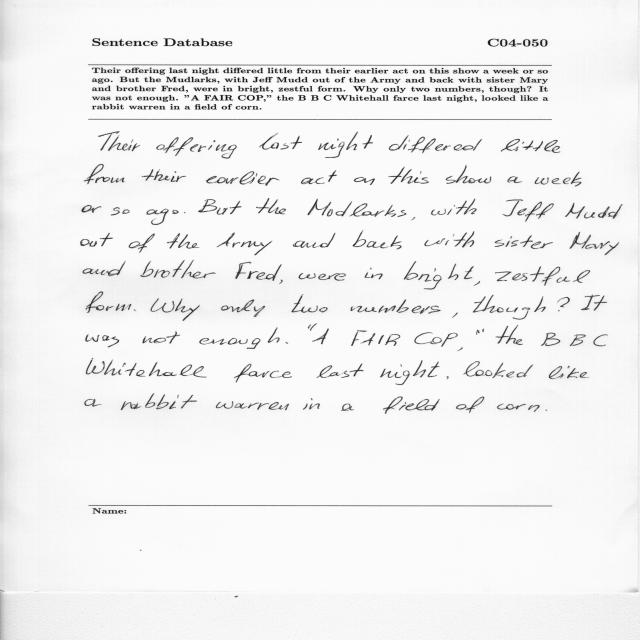 Sentence Database
C04-050
Their offering last night differed little from their earlier act on this show a week or so
ago. But the Mudlarks, with Jeff Mudd out of the Army and back with sister Mary
and brother Fred, were in bright, zestful form. Why only two numbers, though? It
was not enough. "A FAIR COP," the B B C Whitehall farce last night, looked like a
rabbit warren in a field of corn.
Their offering last night differed little
from their earlier act on this show a week
or so ago. But the Modlarks, with Jeff Mudd
out of the Army and back with sister Mary
and brother Fred, were in bright, zestful
form. Why only two numbers, though? It
was not enough. "A FAIR COP," the B B C
Whitehall farce last night. looked like
a rabbit warren in a field of corn.
Name: